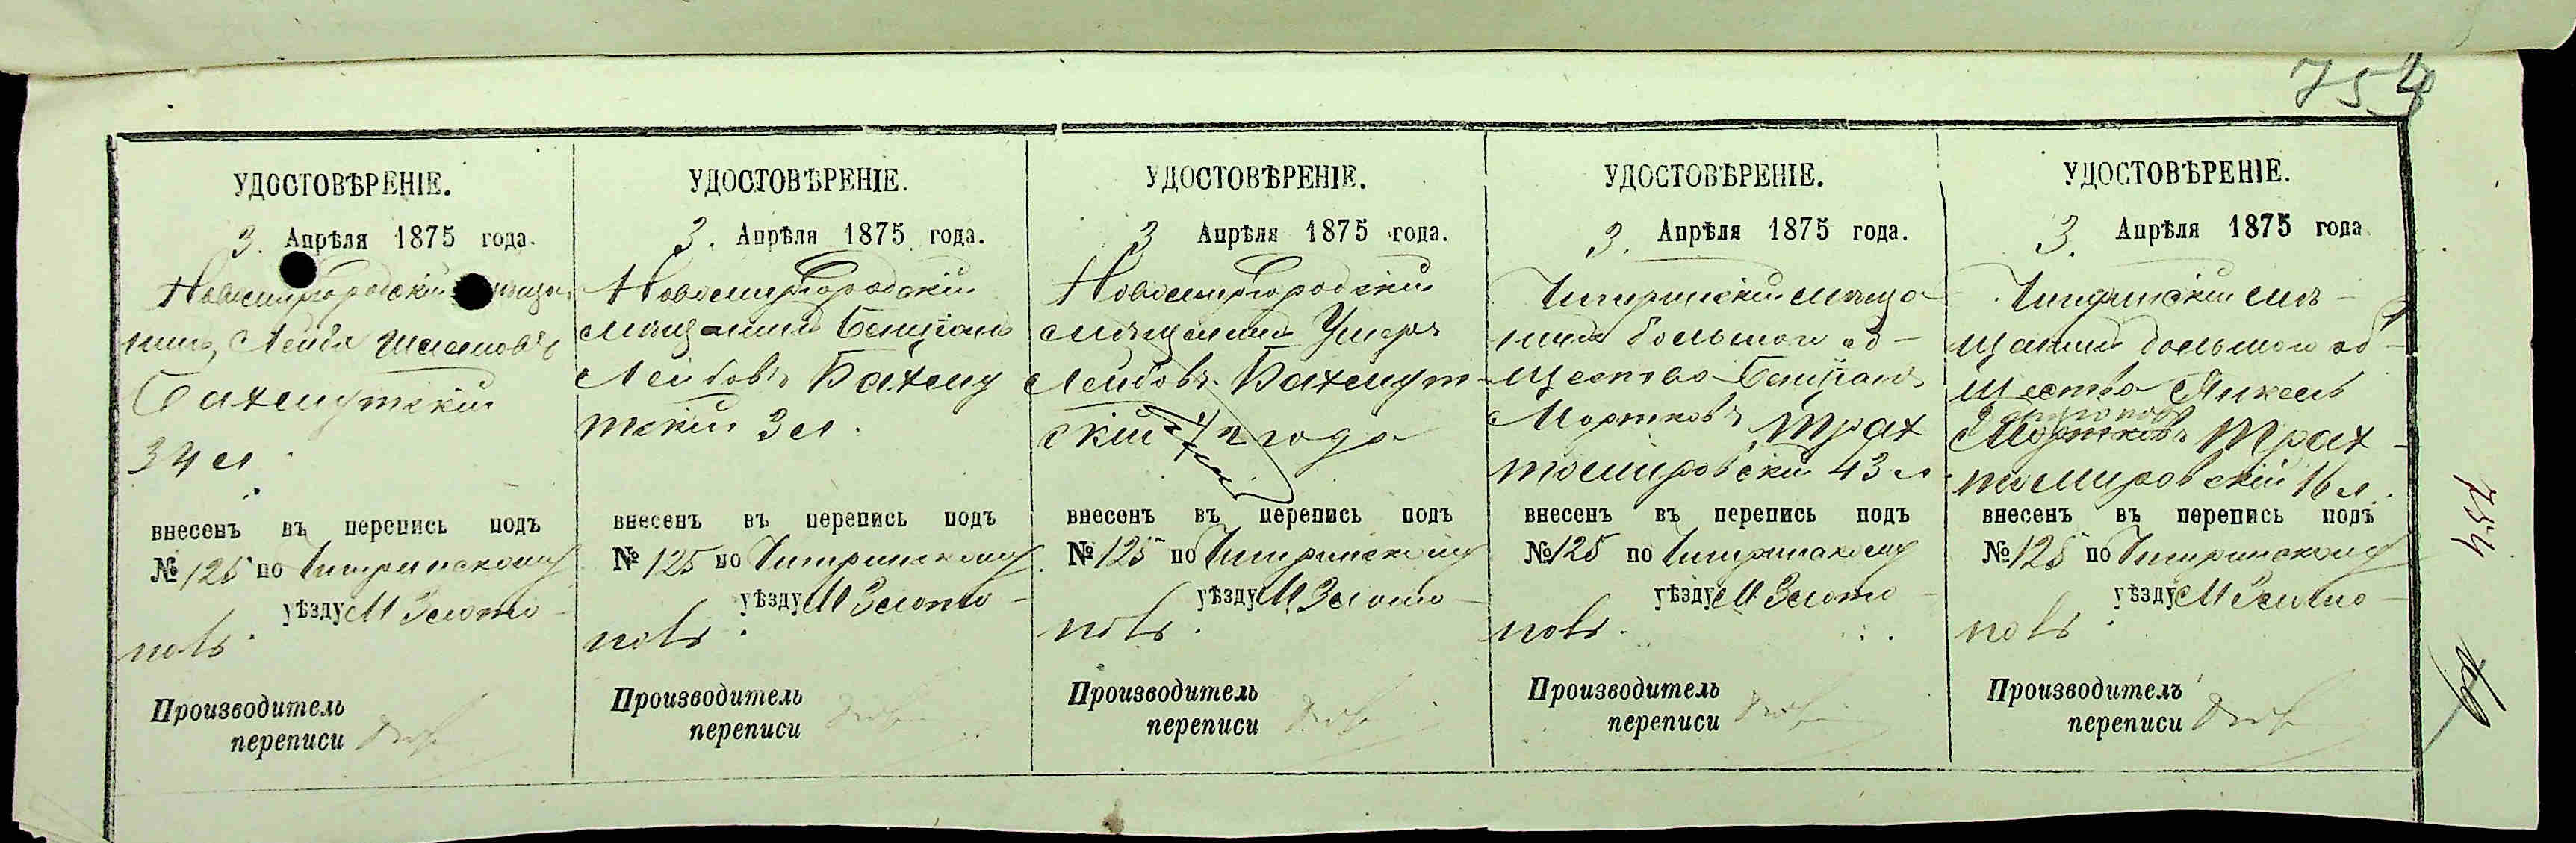 753
УДОСТОВѢРЕНІЕ.
3. Апрѣля 1875 года.
Новомиргородскій мѣща-
нинъ, Лейба Шлемовъ
Бахмутскій
34 л.
внесенъ въ перепись подъ
№ 125 по Чигринскому
уѣзду М Злото-
поль.
Производитель
переписи
УДОСТОВѢРЕНІЕ.
3. Апрѣля 1875 года.
Новомиргородскій
мѣщанинъ Бенціонъ
Лейбовъ Бахму
тскій 3 л.
внесенъ въ перепись подъ
№ 125 по Чигринскому
уѣзду М Злото-
поль.
Производитель
переписи
УДОСТОВѢРЕНІЕ.
3 Апрѣля 1875 года.
Новомиргородскій
мѣщанинъ Ушеръ
Лейбовъ Бахмут-
скій 1/2 года
внесенъ въ перепись подъ
№ 125 по Чигринскому
уѣзду М Злото-
поль.
Производитель
переписи
УДОСТОВѢРЕНІЕ.
3. Апрѣля 1875 года.
Чигринскій мѣща-
нинъ большой об-
щество Бенціонъ
Мортковъ Трах
томировскій 43 л
внесенъ въ перепись подъ
№ 125 по Чигринскому
уѣзду М Злото-
поль.
Производитель
переписи
УДОСТОВѢРЕНІЕ.
3. Апрѣля 1875 года
Чигринскій мѣ-
щанинъ большой об-
щество Янкель
Мортковъ Трах-
томировскій 16 л.
внесенъ въ перепись подъ
№ 125 по Чигринскому
уѣзду М Злото-
поль.
Производитель
переписи
754